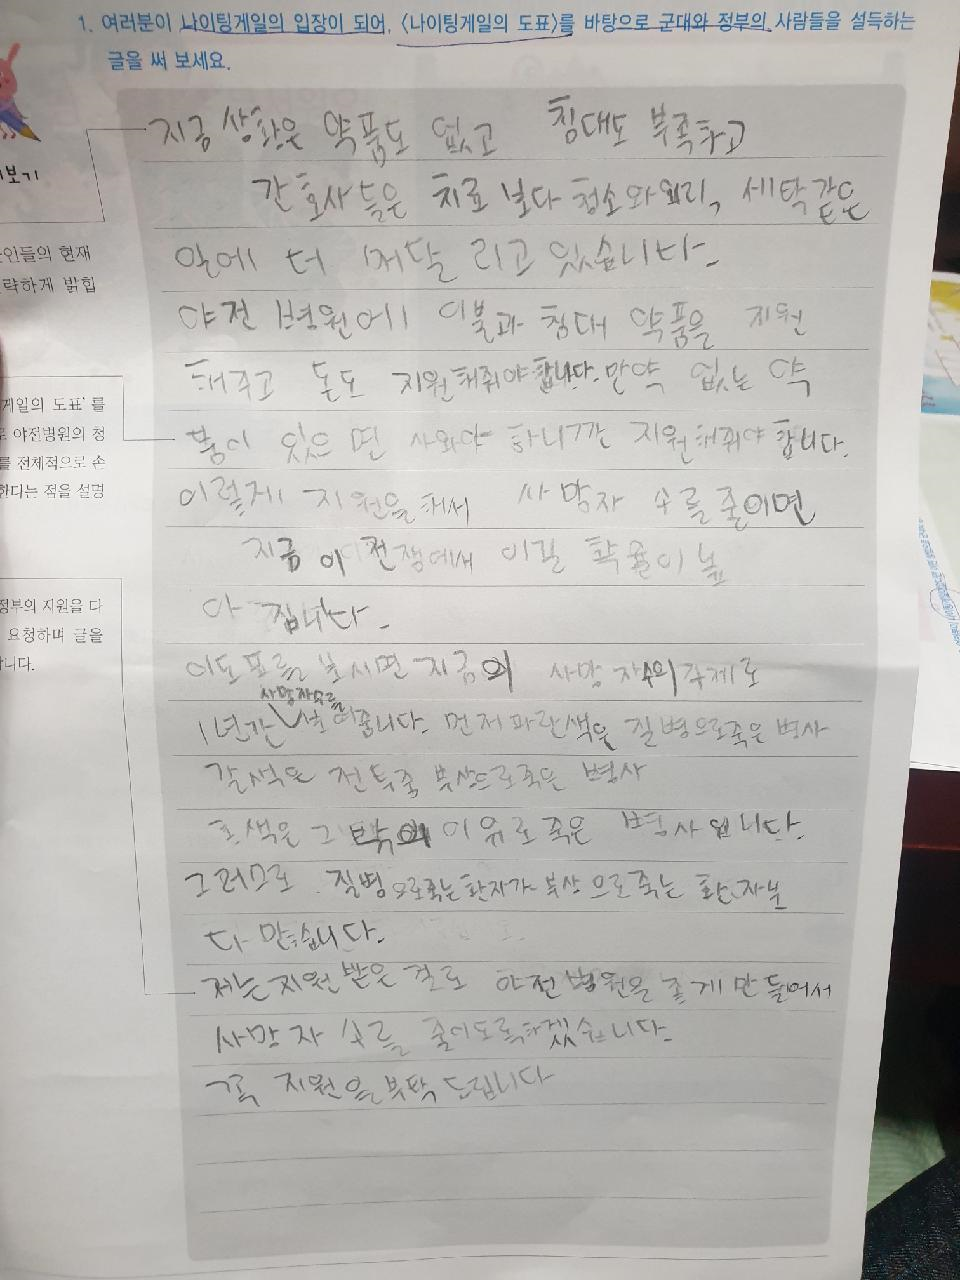 1. 여러분이 나이팅게일의 입장이 되어, 〈나이팅게일의 도표〉를 바탕으로 군대와 정부의 사람들을 설득하는
글을 써 보세요.
보기
지금 상황은 약품도 없고 침대도 부족하고
간호사들은 치료보다 청소와 요리, 세탁같은
일에 더 매달리고 있습니다.
인들의 현재
략하게 밝힙
야전 병원에 이불과 침대 약품을 지원
해주고 돈도 지원해줘야 합니다. 만약 없는 약
게일의 도표'를
품이 있으면 사와야 하니깐 지원해줘야 합니다.
야전병원의 청
를 전체적으로 손
한다는 점을 설명
이렇게 지원을 해서 사망자 수를 줄이면
지금 이 전쟁에서 이길 확률이 높
아 집니다.
정부의 지원을 다
요청하며 글을
합니다.
이도표를 보시면 지금의 사망자수의 주제로
사망자수를
1년간 보여줍니다. 먼저 파란색은 질병으로죽은 병사
갈색은 전투중 부상으로죽은 병사
흐색은 그 밖의 이유로 죽은 병사입니다.
그러므로 질병으로죽는환자가 부상으로죽는 환자보
다 많습니다.
저는지원받은 걸로 야전병원을 좋게 만들어서
사망자 수를 줄이도록하겠습니다.
꼭 지원을 부탁 드립니다